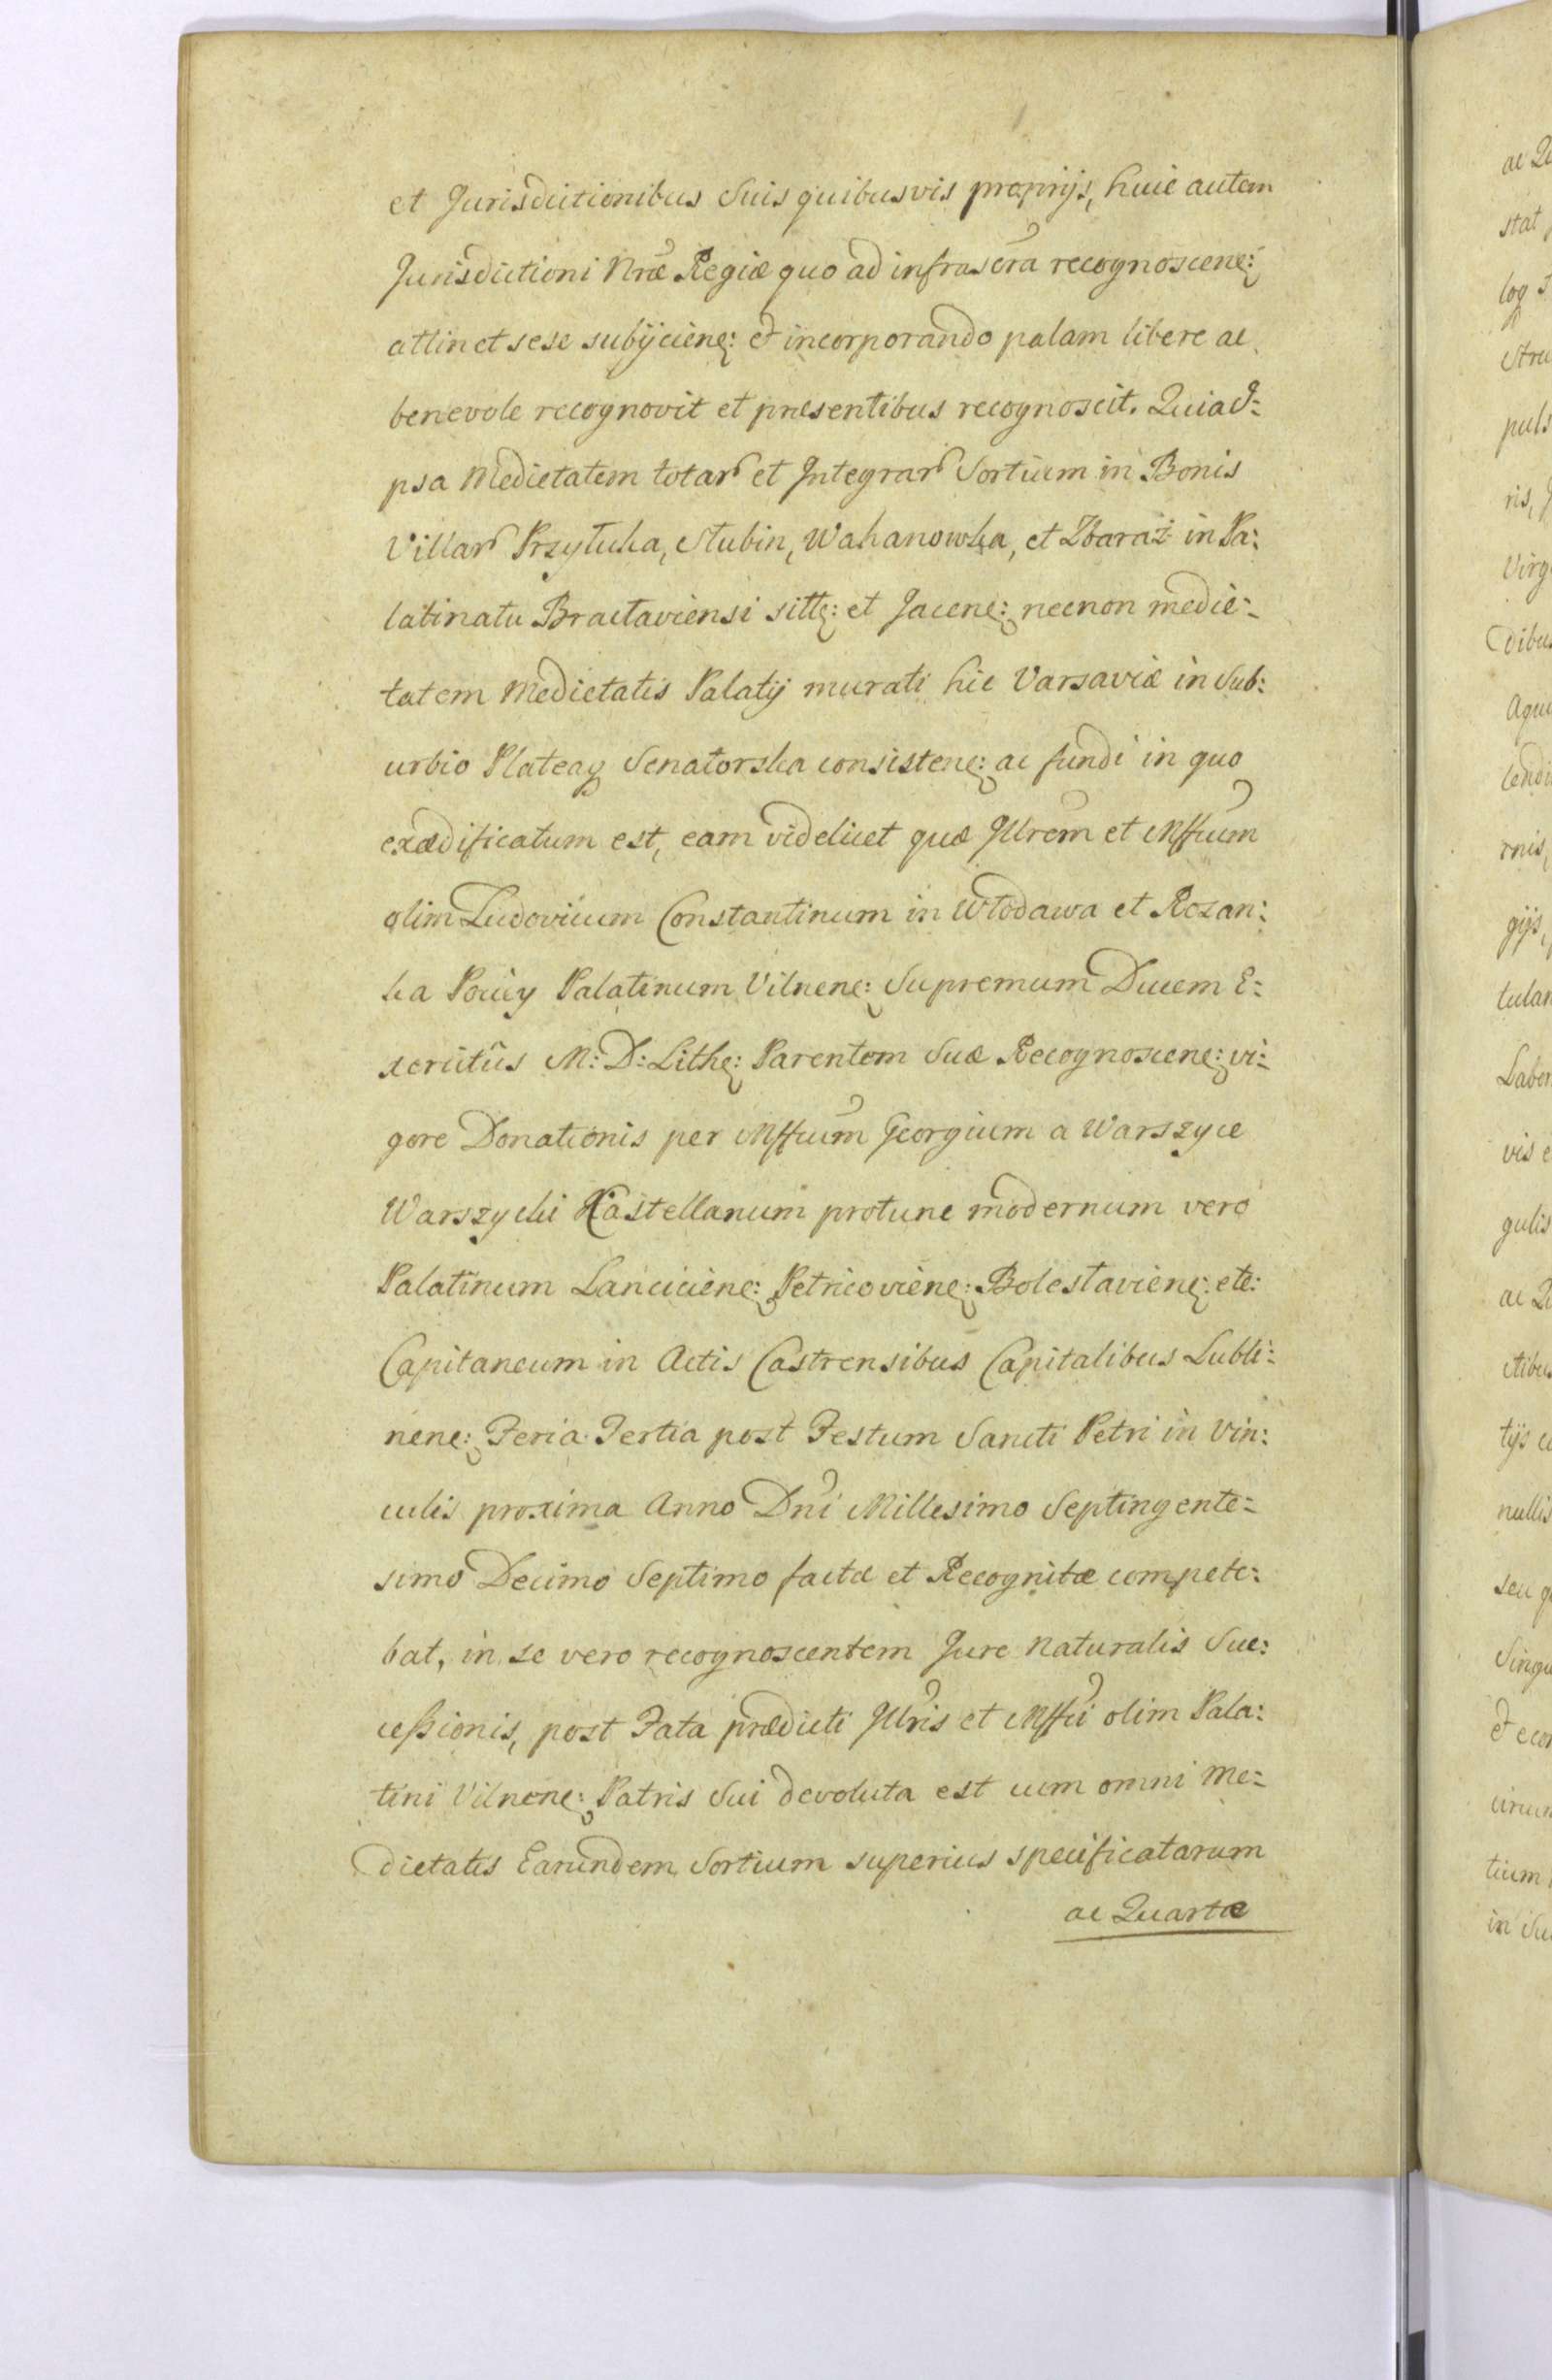 et Jurisdictionibus Suis quibusvis proprijs, huic autem
Jurisdictioni Nrae Regiae quo ad infrascra recognoscenc:
attinet sese subijcienc: et incorporando palam libere ac
benevole recognovit et praesentibus recognoscit. Quia J=
psa Medietatem totar et Integrar Sortium in Bonis
Villar Przyłuka, Stubin, Wahanowka, et Zbaraż in Pa:
latinatu Bractaviensi sitt: et Jacenc: necnon medie=
tatem Medietatis Palatij murati hic Varsaviae in Sub:
urbio Plateaq Senatorska consistenc: ac fundi in quo
exaedificatum est, eam videlicet quae Jllrem et Mffcum
olim Ludovicum Constantinum in Włodawa et Rozan:
ka Pociey Palatinum Vilnenc: Supremum Ducem E:
xercitûs M: D: Lith: Parentem Suae Recognoscenc: vi=
gore Donationis per Mffcum Georgium a Warszyce
Warszycki Kastellanum protunc modernum vero
Palatinum Lancicienc: Petricovienc: Bolestavienc: etc:
Capitaneum in Actis Castrensibus Capitalibus Lubli=
nenc: Feria Tertia post Festum Sancti Petri in Vin:
culis proxima Anno Dni Millesimo Septingente=
simo Decimo Septimo factae et Recognitae compete:
bat, in se vero recognoscentem Jure Naturalis Suc:
cessionis, post Fata praedicti Jllris et Mffci olim Pala:
tini Vilnenc: Patris Sui devoluta est cum omni Me=
dietatis Earundem Sortium superius specificatarum
ac Quartae